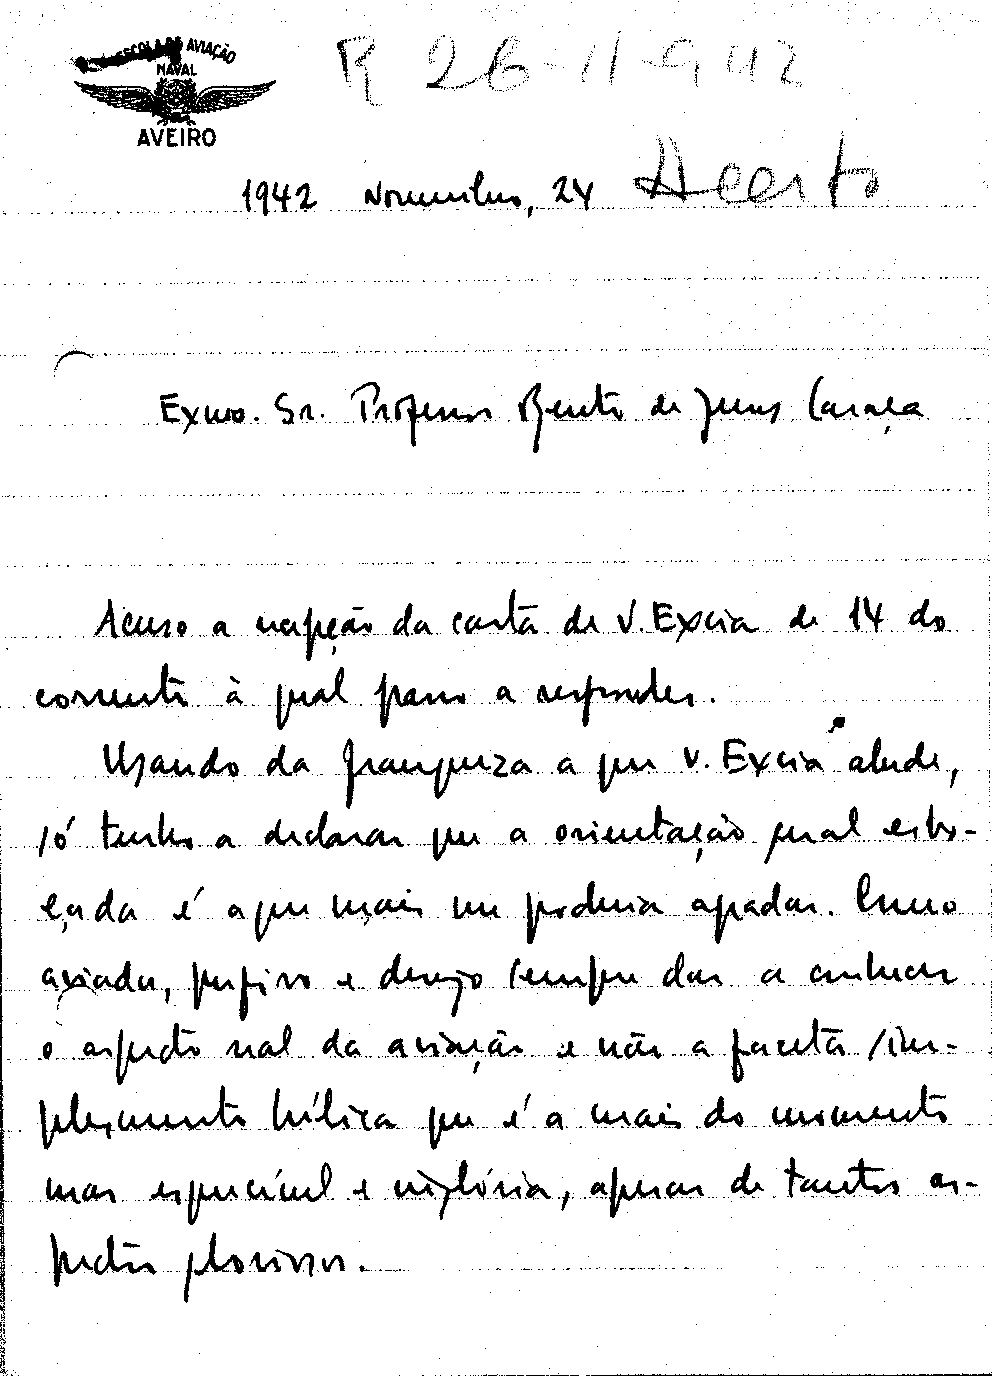 ESCOLA DE AVIAÇÃO
NAVAL
AVEIRO
R 26-11-942
Aceito
1942 Novembro, 24
Exmo. Sr. Professor Bento de Jesus Caraça
Acuso a recepção da carta de V. Excia de 14 do
corrente à qual passo a responder.
Usando da franqueza a que V. Excia alude,
só tenho a declarar que a orientação geral esbo-
çada é a que mais me poderia agradar. Como
aviador, prefiro e desejo sempre dar a conhecer
o aspecto real da aviação e não a faceta sim-
plesmente bélica que é a mais do momento
mas esquecível e inglória, apesar de tantos as-
pectos gloriosos.